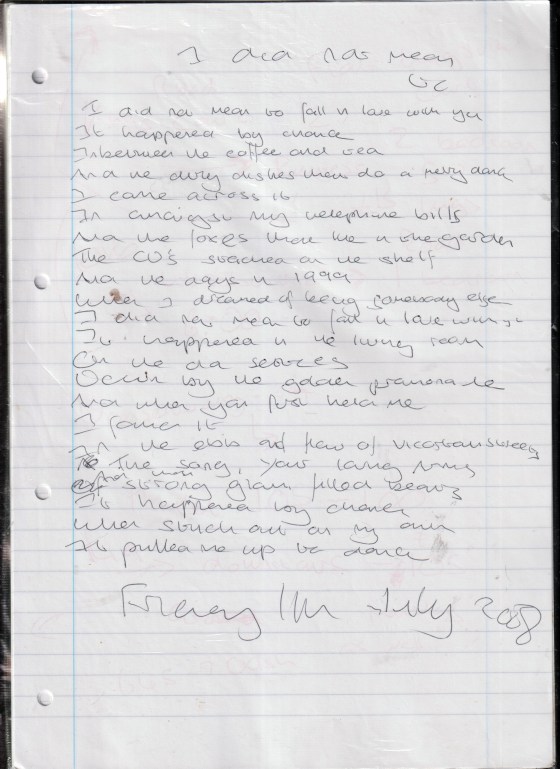 I did not mean
to
I did not mean to fall in love with you
It happened by chance
Inbetween the coffee and tea
And the dirty dishes that do a merry dance
I came across it
In amongst my telephone bills
And the foxes that live in the garden
The CD's stacked on the shelf
And the days in 1999
When I dreamed of being somebody else
I did not mean to fall in love with you
It happened in the living room
On the old settees
by the golden promenade
And when you first held me
I found it
In the ebb and flow of Victorian streets
The song, your loving
And strong filled beams
It happened by chance
When stuck out on my own
It pulled me up to dance
Friday 11th July 2008